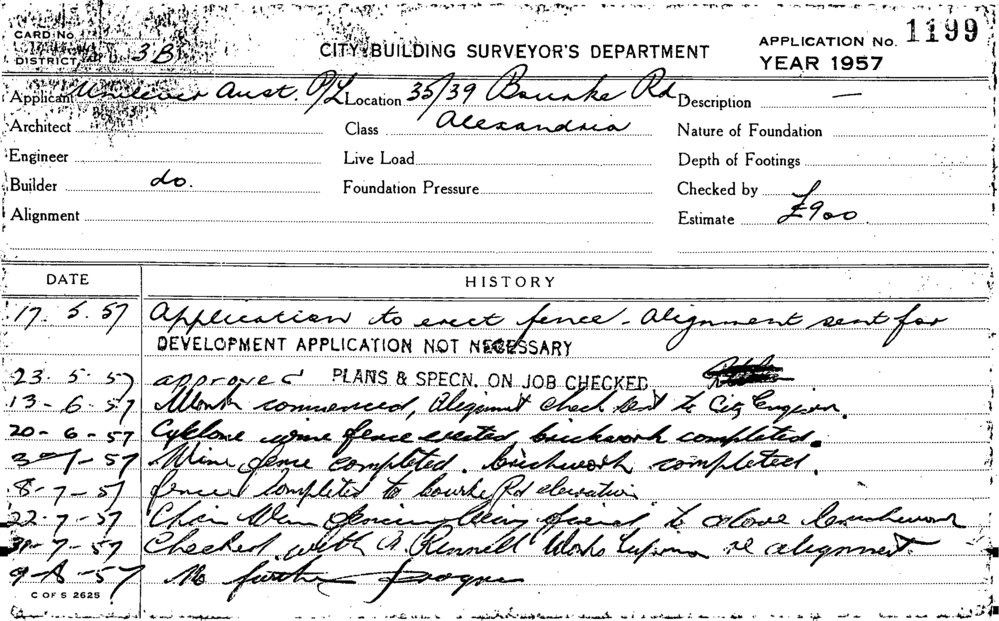 CARD No.
DISTRICT 3B
CITY BUILDING SURVEYOR'S DEPARTMENT
APPLICATION No. 1199
YEAR 1957
Applicant Unilever Aust. P/L Location 35/39 Bourke Rd Description —
Architect Class Alexandria Nature of Foundation
Engineer Live Load Depth of Footings
Builder do. Foundation Pressure Checked by
Alignment Estimate £900
DATE HISTORY
17. 5. 57 Application to erect fence - alignment sent for
DEVELOPMENT APPLICATION NOT NECESSARY
23. 5. 57 approved PLANS & SPECN. ON JOB CHECKED
13 - 6 - 57 Work commenced, alignment check sent to City Engineer.
20 - 6 - 57 Cyclone wire fence erected, brickwork completed.
57 Wire fence completed. brickwork completed.
8 - 7 - 57 fence completed to Bourke Rd elevation
22 - 7 - 57 Chain Wire fencing being fixed to above brickwork
57 Checked with Works re alignment
9 - 8 - 57 No further progress
C OF S 2625